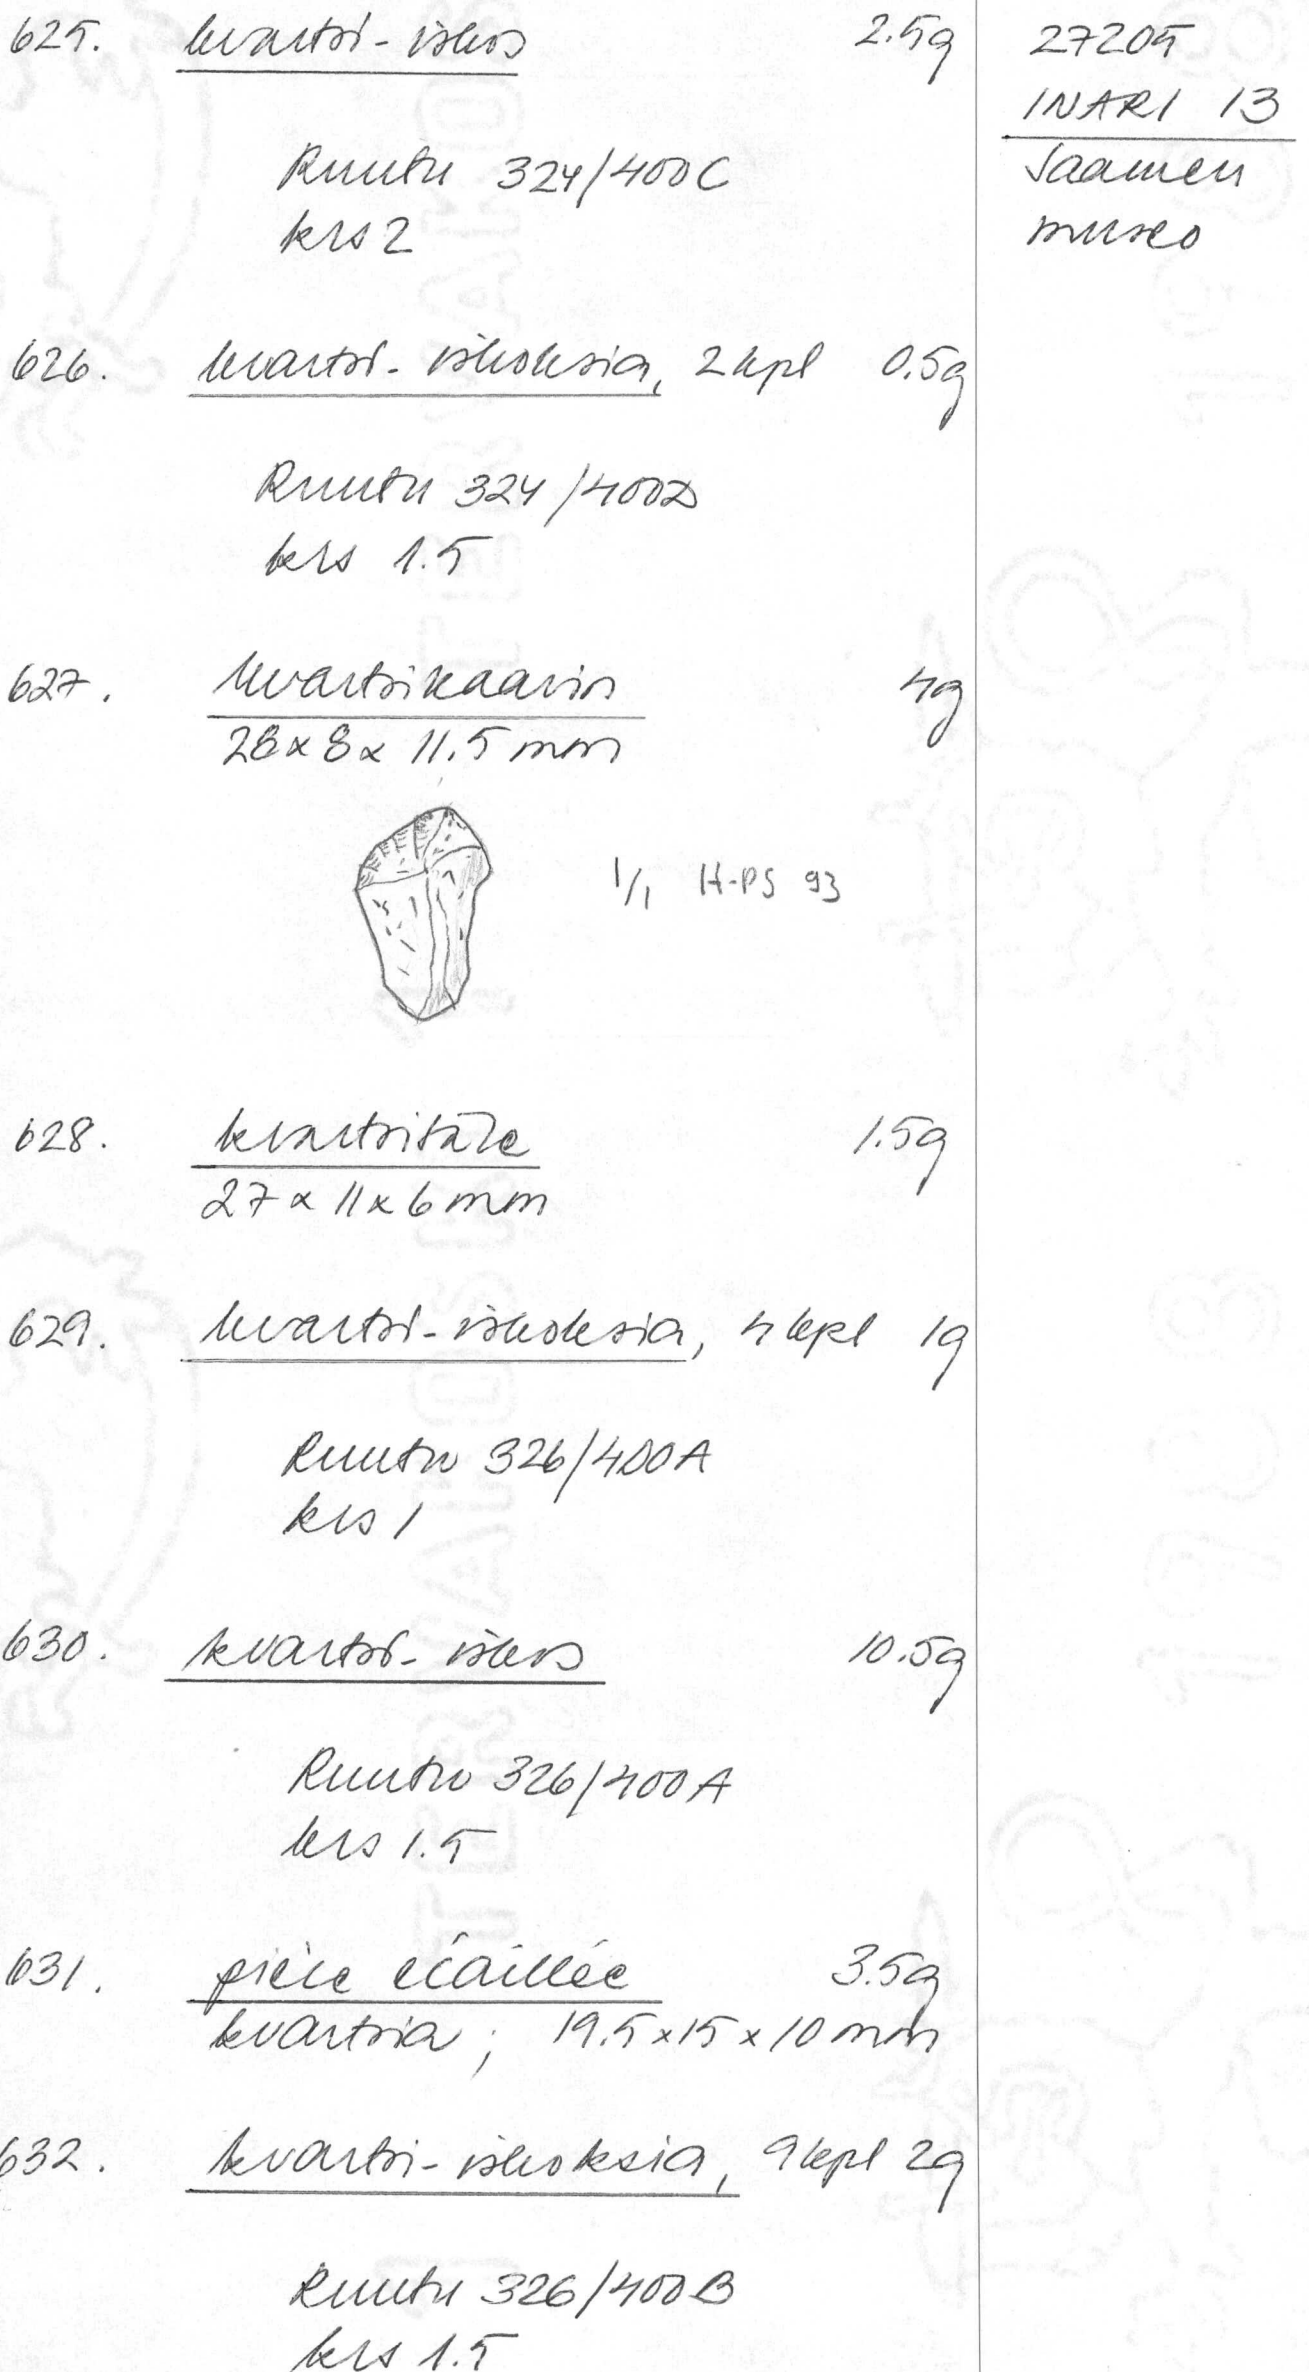 625. kvartsi-iskos 2.5g
27205
INARI 13
Saamen
museo
Ruutu 324/400C
krs 2
626. kvartsi-iskoksia, 2 kpl 0.5g
Ruutu 324/400D
krs 1.5
627. kvartsikaavin 4g
28 x 8 x 11.5 mm
1/1 H-PS 93
628. kvartsitäle 1.5g
27 x 11 x 6 mm
629. kvartsi-iskoksia, 4 kpl 1g
Ruutu 326/400A
krs 1
630. kvartsi-iskos 10.5g
Ruutu 326/400A
krs 1.5
631. pièce écaillée 3.5g
kvartsia; 19.5 x 15 x 10 mm
632. kvartsi-iskoksia, 9 kpl 2g
Ruutu 326/400B
krs 1.5